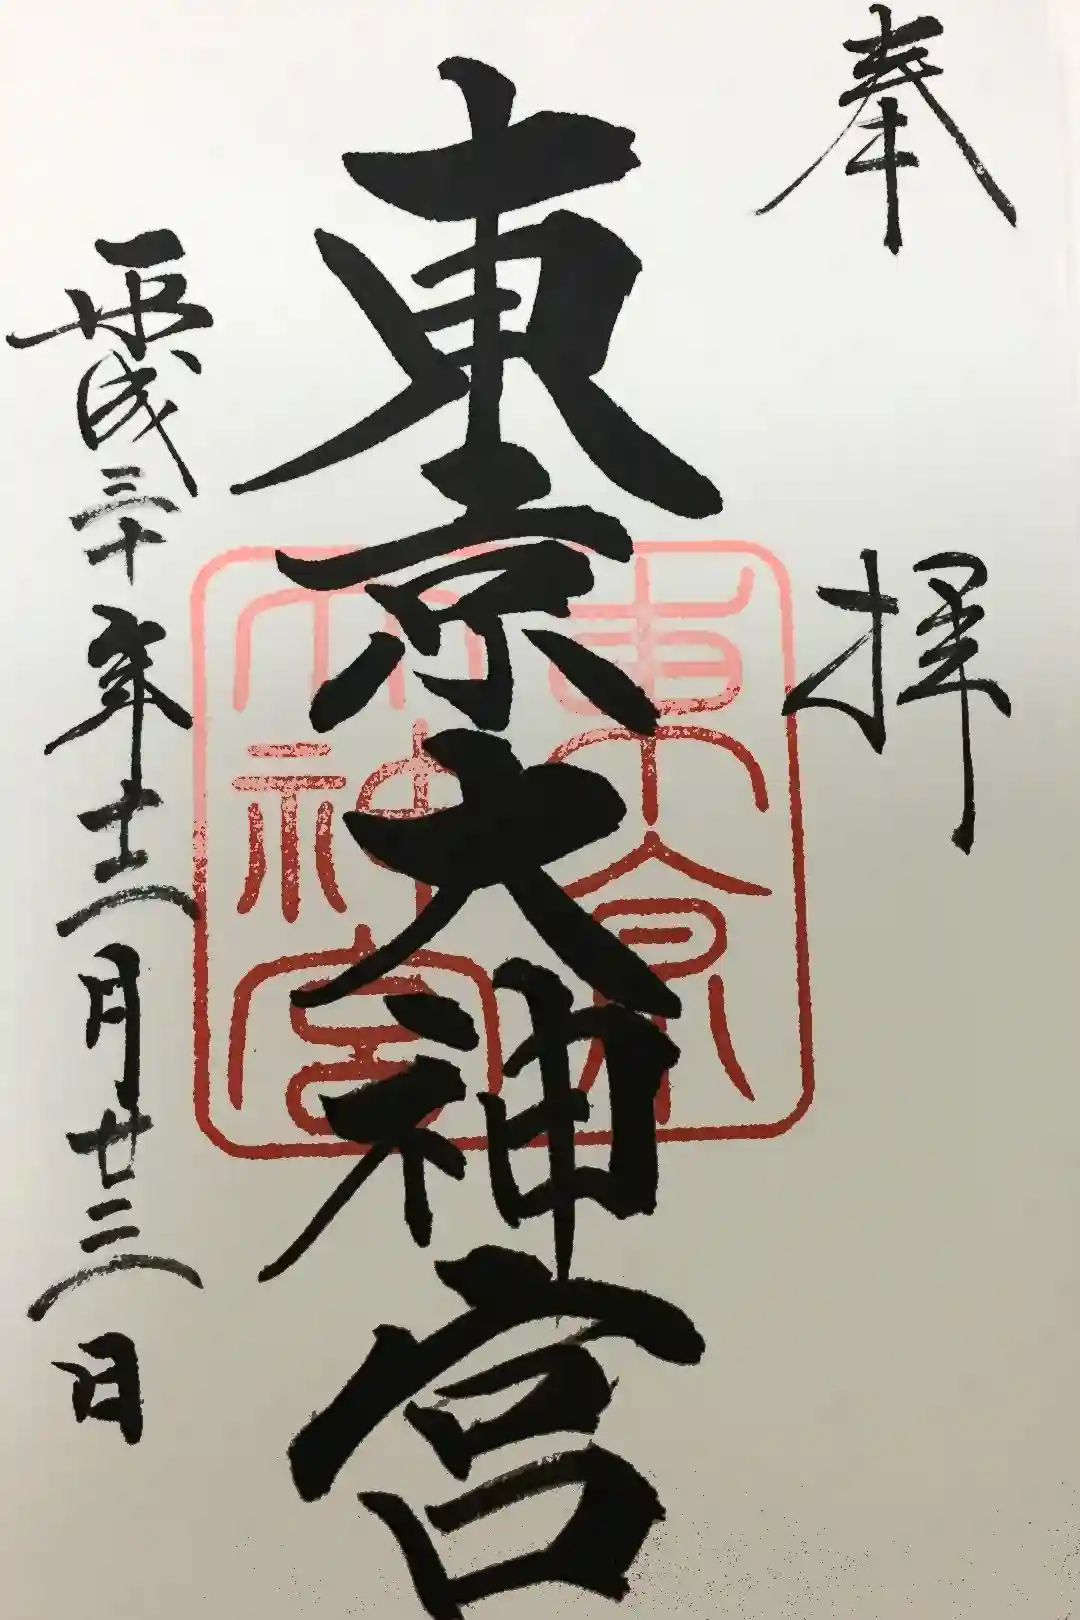 奉拝
東京大神宮
平成三十年十二月廿三日
東京
大神宮